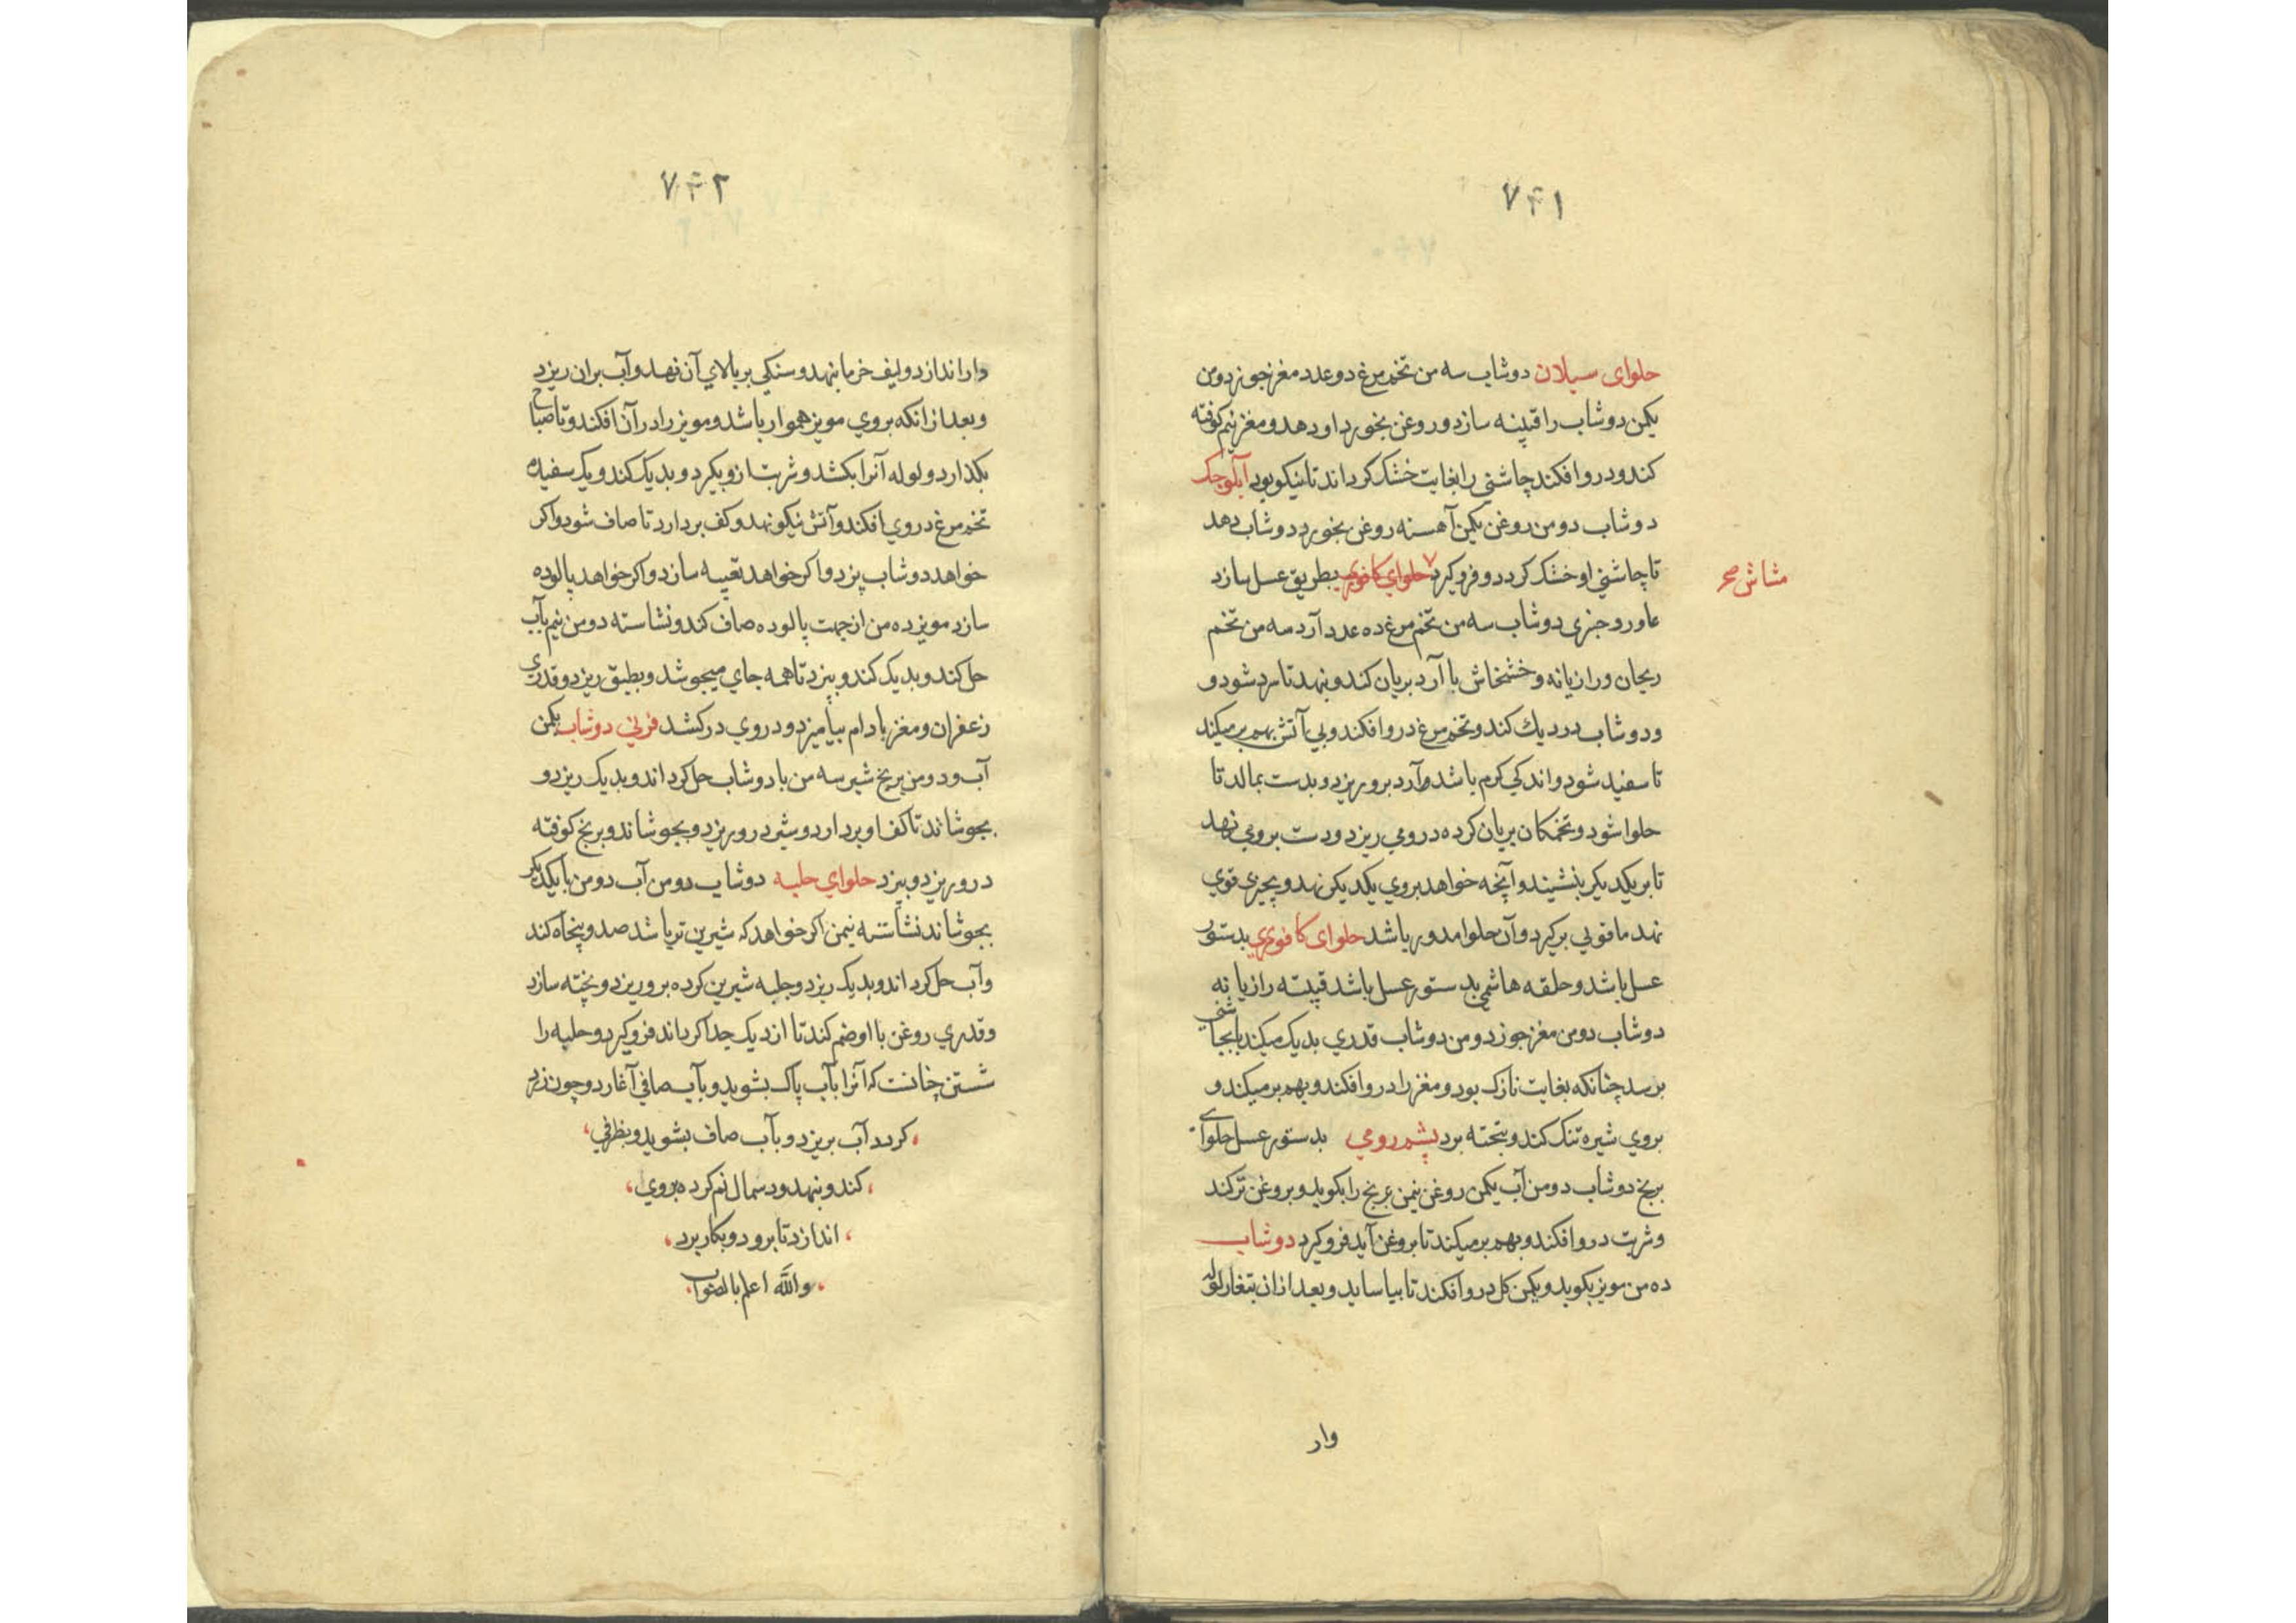 ۷۴۱
حلوای سیلان دوشاب سه من تخم مرغ دو عدد مغز جوز دو من
یکمن دوشاب را قبیته سازد و روغن بخورد او دهد و مغز نیم کوفته
کند و درو افکند چاشنی را بغایت خشک کرداند تا نیکو بود آبکوجک
دوشاب دو من روغن یکمن آهسته روغن بخورد دوشاب دهد
تا چاشنی او خشک کردد و فرو کیرد حلوای کافوری بطریق عسل سازد
مشاش صح
دوشاب سه من تخم مرغ ده عدد آرد سه من تخم
ریحان و رازیانه و خشخاش با آرد بریان کند و بنهد تا سرد شود و
و دوشاب در دیك کند و تخم مرغ درو افکند و بی آتش بهم بر میکند
تا سفید شود و اندکی کرم باشد و آرد برو ریزد و بدست بمالد تا
حلوا شود و تخمکان بریان کرده درو می ریزد و دست بروی نهد
تا بر یکدیکر بنشیند و آنچه خواهد بروی یکدیکر نهد و بچیزی قوی
نهد ما قوتی برکیرد و آن حلوا مدور باشد حلوای کافوری بدستور
عسل باشد و حلقه هاشمی بدستور عسل باشد قبیته رازیانه
دوشاب دو من مغز جوز دو من دوشاب قدری بدیک میکند تا بجاشنی
برسد چنانکه بغایت نازک بود و مغز را درو افکند و بهم بر میکند و
بروی شیره تنک کند و بتخته برد پشم رومی بدستور عسل حلوای
برنج دوشاب دو من آب یکمن روغن نیمن برنج را بکوبد و بروغن تر کند
و شربت درو افکند و بهم بر میکند تا بروغن آید فرو کیرد دوشاب
ده من مویز بکوبد و یکمن کل درو افکند تا بیاساید و بعد از ان بتغار لوله
وار
۷۴۲
دار اندازد و لیف خرما بنهد و سنکی بر بالای آن نهد و آب بران ریزد
و بعد از انکه بروی مویز هموار باشد و مویز را در آن افکند و تا صباح
بکذارد و لوله آنرا بکشد و شربت ازو بکیرد و بدیک کند و یک سفیده
تخم مرغ در وی افکند و آتش نیکو نهد و کف بردارد تا صاف شود و اکر
خواهد دوشاب پزد و اکر خواهد تعبیه سازد و اکر خواهد پالوده
سازد مویز ده من از جهت پالوده صاف کند و نشاسته دو من نیم بآب
حل کند و بدیک کند و بپزد تا همه جای میجوشد و بطبق ریزد و قدری
زعفران و مغز بادام بیامیزد و در وی در کشد فرنی دوشاب یکمن
آب و دو من برنج شیر سه من با دوشاب حل کرداند و بدیک ریزد و
بجوشاند تا کف او بردارد و شیر درو ریزد و بجوشاند و برنج کوفته
درو ریزد و بپزد حلوای حلبه دوشاب دو من آب دو من با یکدیکر
بجوشاند نشاسته نیمن اکر خواهد که شیرین تر باشد صد و پنجاه کند
و آب حل کرداند و بدیک ریزد و حلبه شیرین کرده برو ریزد و پخته سازد
و قدری روغن با او ضم کند تا از دیک جدا کرداند فرو کیرد و حلبه را
شستن چنانست که آنرا بآب پاک بشوید و بآب صافی آغارد و چون زرد
کردد آب بریزد و بآب صاف بشوید و بظرفی
کند و بنهد و دسمال نم کرده بروی
اندازد تا برود و بکار برد
والله اعلم بالصواب